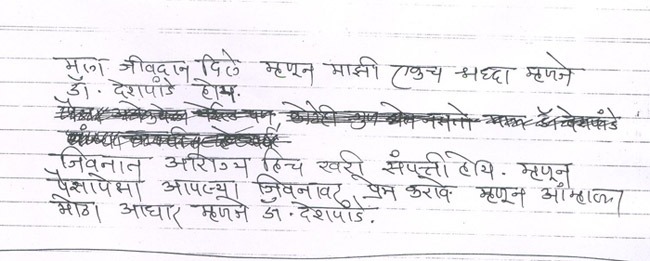 मुला जीवदान दिले म्हणून माझी एकच श्रध्दा म्हणजे
डॉ. देशपांडे होय.
जिवनात आरोग्य हिच खरी संपत्ती होय. म्हणून
पैशापेक्षा आपल्या जिवनावर प्रेम करावे म्हणून आम्हाला
मोठा आधार म्हणजे डॉ. देशपांडे.